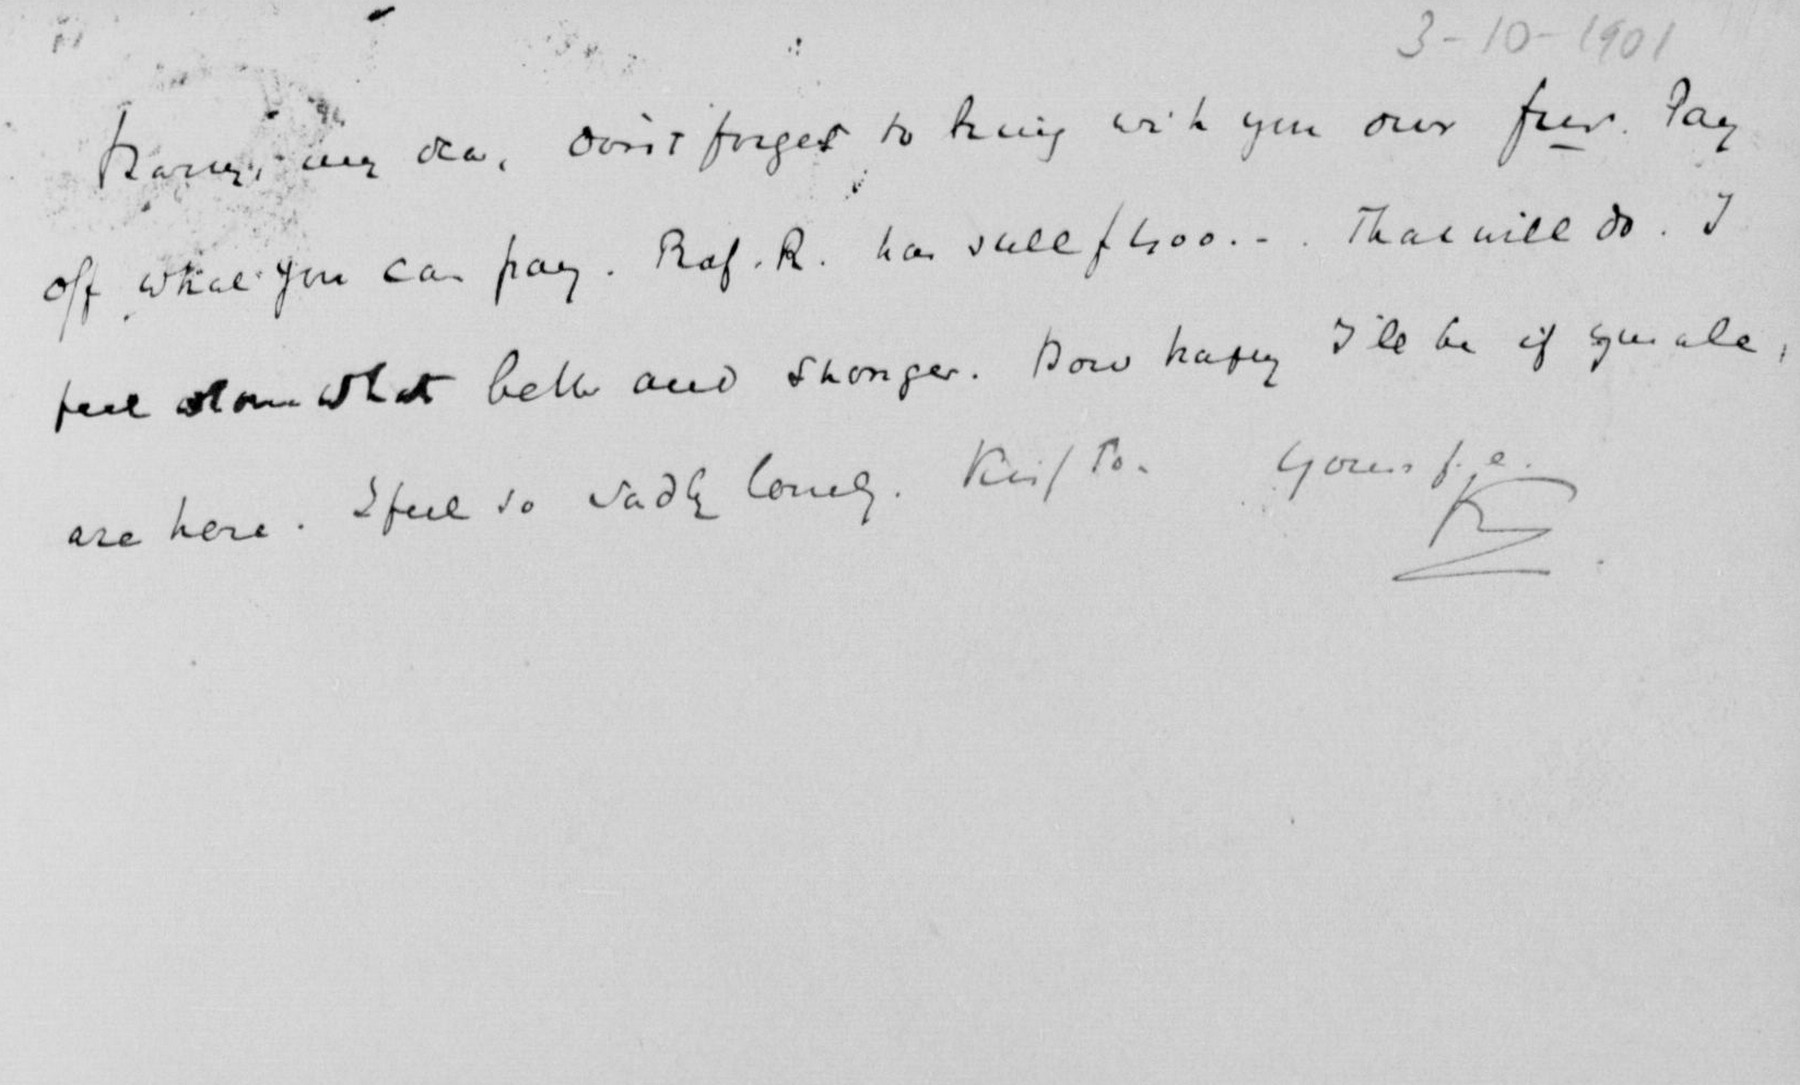 3-10-1901
my dear, don't forget to bring with you our fur. Pay
off what you can pay. R. has still f 400.-. That will do. I
feel somewhat better and stronger. How happy I'll be if you all,
are here. I feel so sadly lonely. Kiss To. Yours f.e.